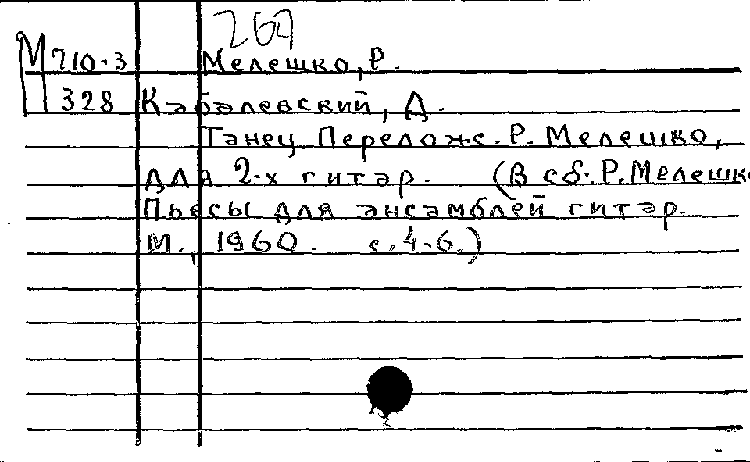 267
М 710-3 Мелешко, Р.
328 Кабалевский, Д.
Танец. Перелож. Р. Мелешко,
для 2-х гитар. (В сб. Р. Мелешк
Пьесы для ансамблей гитар.
М., 1960. с. 4-6.)